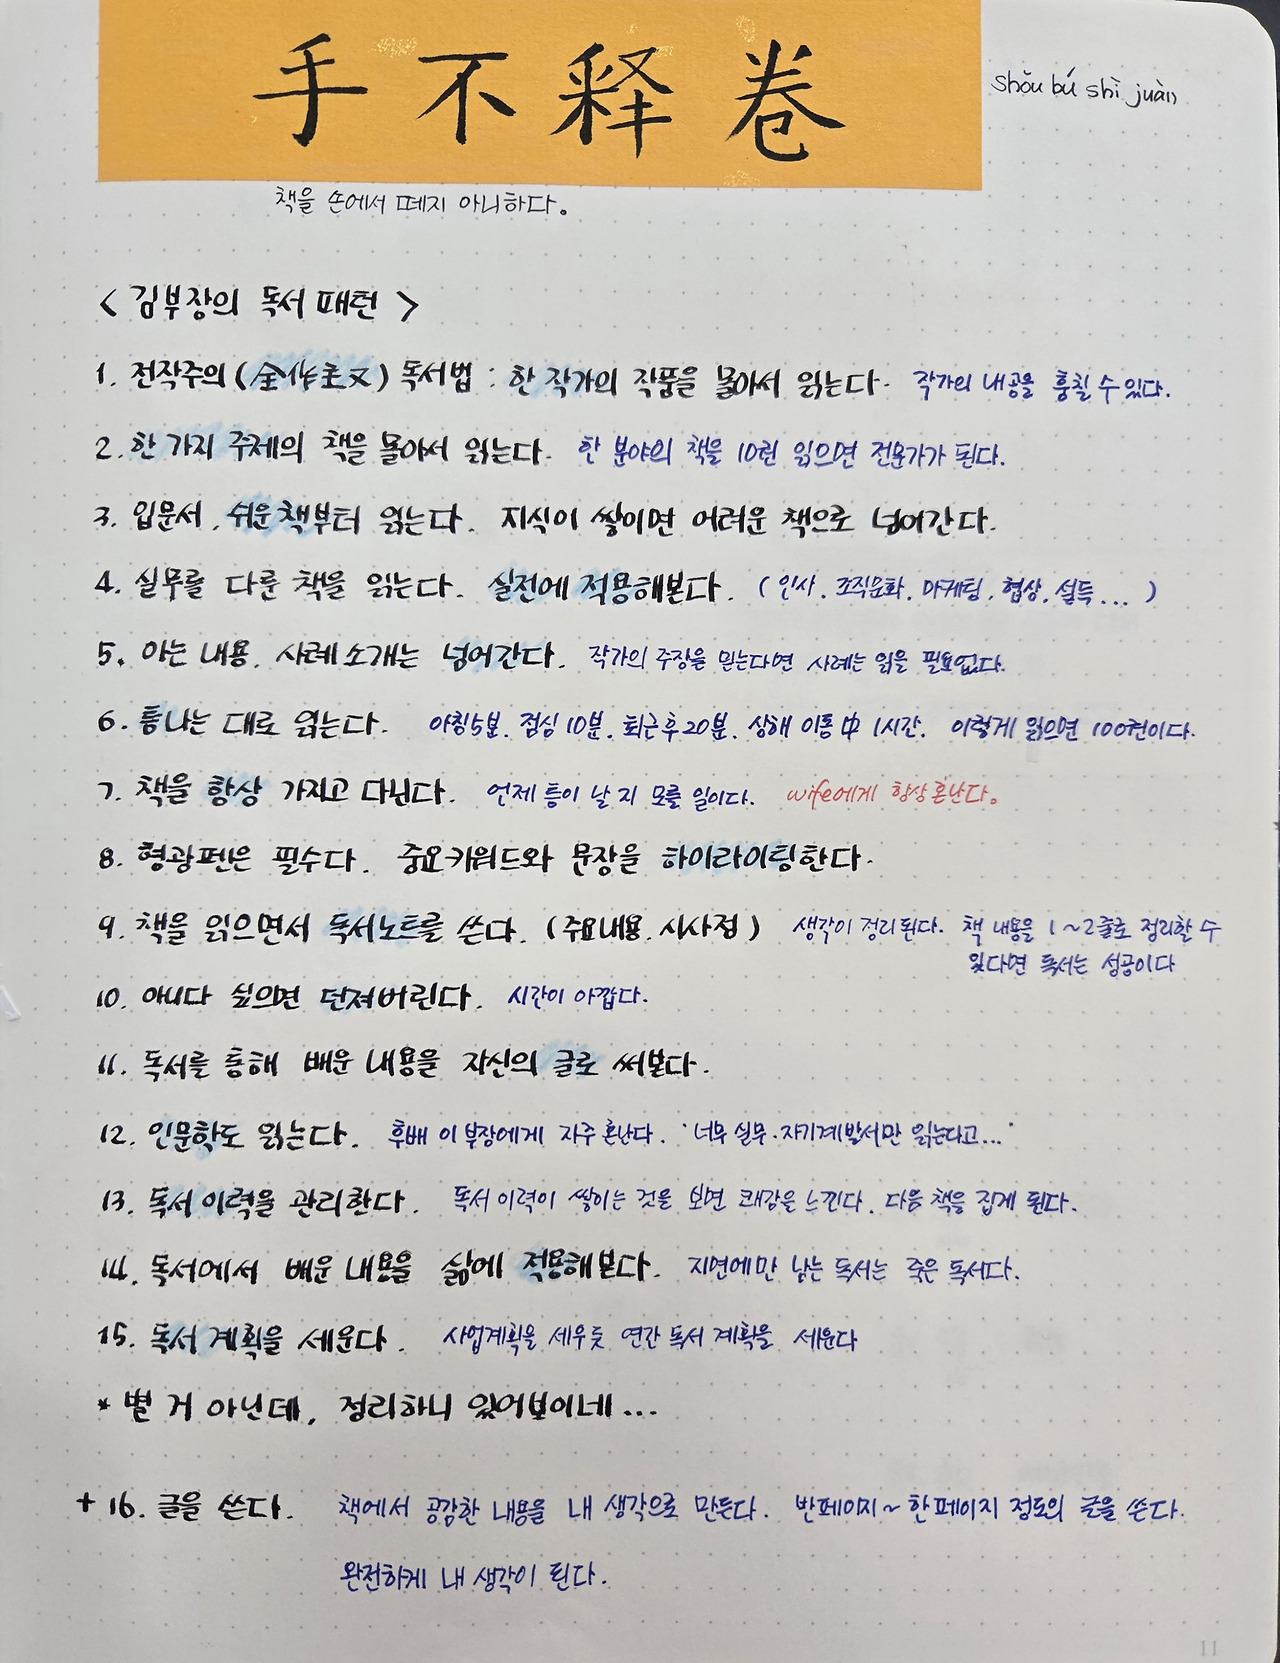 手不释卷
shǒu bú shì juàn
책을 손에서 떼지 아니하다。
< 김부장의 독서 패턴 >
1. 전작주의(全作主义) 독서법 : 한 작가의 작품을 몰아서 읽는다. 작가의 내공을 훔칠 수 있다.
2. 한 가지 주제의 책을 몰아서 읽는다. 한 분야의 책을 10권 읽으면 전문가가 된다.
3. 입문서, 쉬운 책부터 읽는다. 지식이 쌓이면 어려운 책으로 넘어간다.
4. 실무를 다룬 책을 읽는다. 실전에 적용해본다. (인사, 조직문화, 마케팅, 협상, 설득...)
5. 아는 내용, 사례 소개는 넘어간다. 작가의 주장을 믿는다면 사례는 읽을 필요없다.
6. 틈나는 대로 읽는다. 아침5분, 점심10분, 퇴근후20분, 상해 이동中 1시간, 이렇게 읽으면 100권이다.
7. 책을 항상 가지고 다닌다. 언제 틈이 날지 모를 일이다. wife에게 항상 혼난다。
8. 형광펜은 필수다. 중요키워드와 문장을 하이라이팅한다.
9. 책을 읽으면서 독서노트를 쓴다. (주요내용, 시사점) 생각이 정리된다. 책 내용을 1~2줄로 정리할 수
있다면 독서는 성공이다
10. 아니다 싶으면 던져버린다. 시간이 아깝다.
11. 독서를 통해 배운 내용을 자신의 글로 써본다.
12. 인문학도 읽는다. 후배 이부장에게 자주 혼난다. '너무 실무·자기계발서만 읽는다고...'
13. 독서 이력을 관리한다. 독서 이력이 쌓이는 것을 보면 쾌감을 느낀다. 다음 책을 집게 된다.
14. 독서에서 배운 내용을 삶에 적용해본다. 지면에만 남는 독서는 죽은 독서다.
15. 독서 계획을 세운다. 사업계획을 세우듯 연간 독서 계획을 세운다
* 별 거 아닌데, 정리하니 있어보이네...
+ 16. 글을 쓴다. 책에서 공감한 내용을 내 생각으로 만든다. 반페이지~한페이지 정도의 글을 쓴다.
완전하게 내 생각이 된다.
11